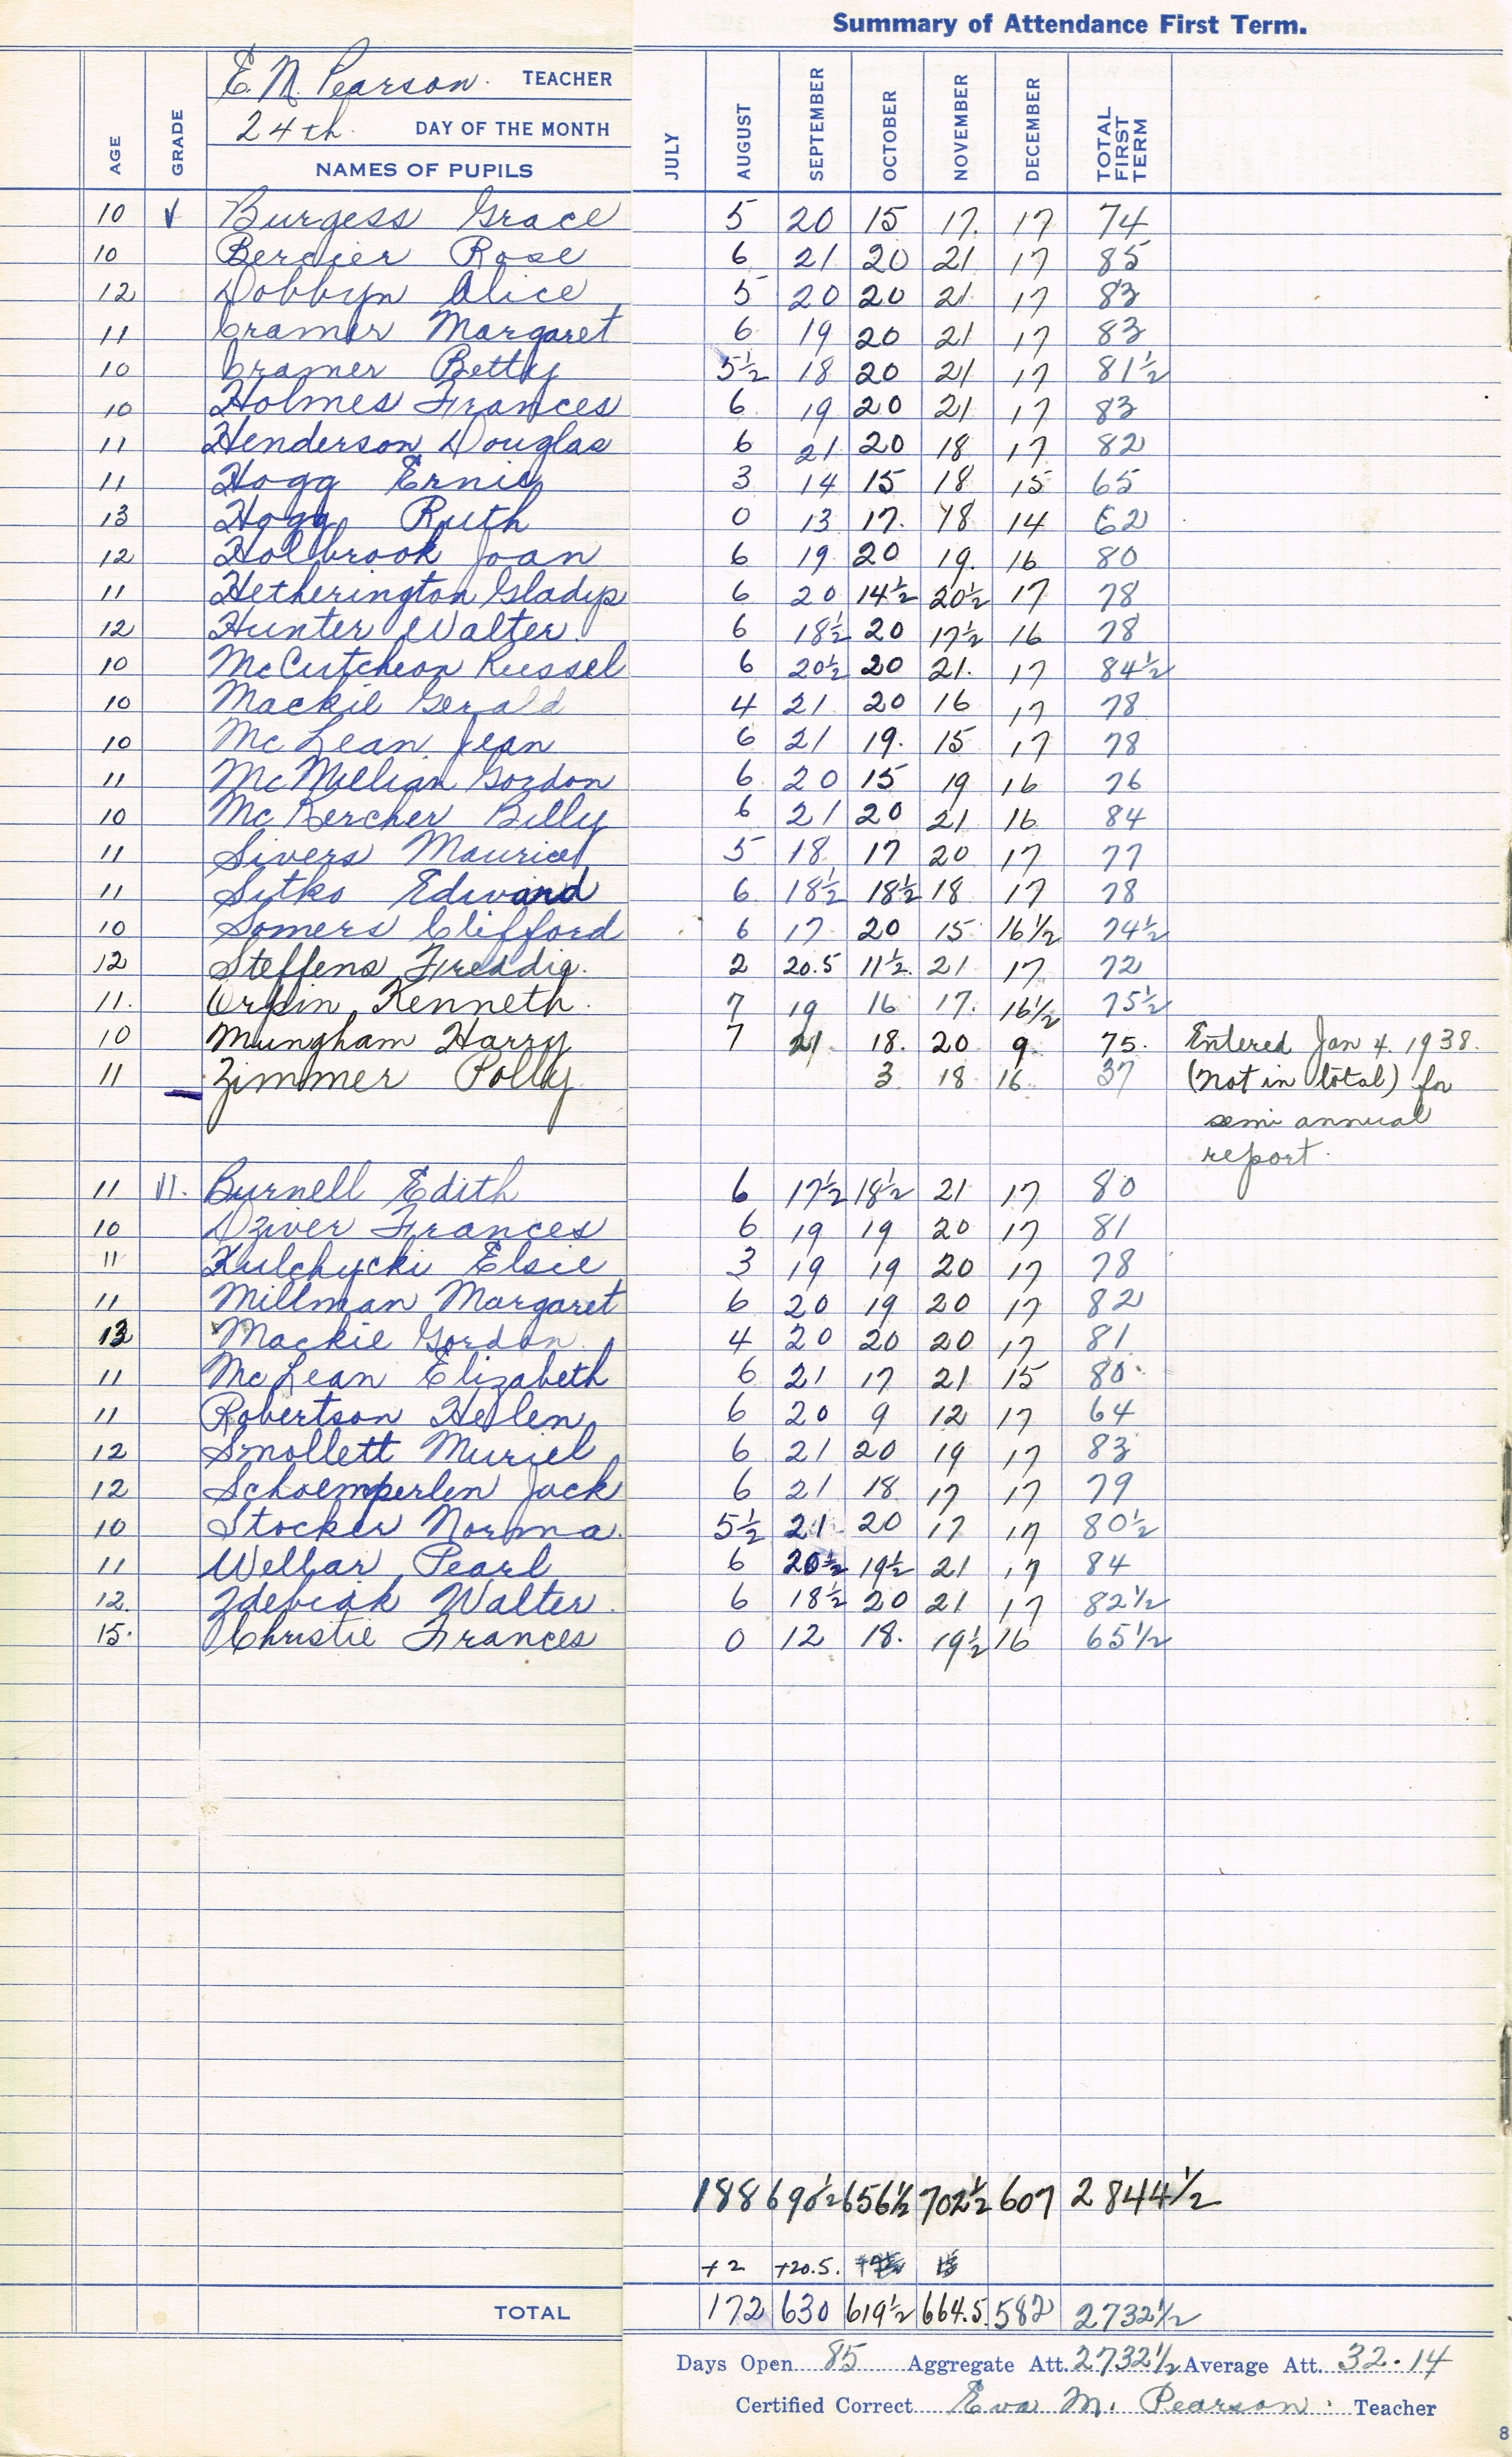 Summary of Attendance First Term.
E. M. Pearson. TEACHER
24th. DAY OF THE MONTH
AGE GRADE NAMES OF PUPILS JULY AUGUST SEPTEMBER OCTOBER NOVEMBER DECEMBER TOTAL FIRST TERM
10 V Burgess Grace 5 20 15 17. 17 74
10 Bercier Rose 6 21 20 21 17 85
12 Dobbyn Alice 5 20 20 21 17 83
11 Cramer Margaret 6 19 20 21 17 83
10 Cramer Betty 5½ 18 20 21 17 81½
10 Holmes Frances 6 19 20 21 17 83
11 Henderson Douglas 6 21 20 18 17 82
11 Hogg Ernie 3 14 15 18 15 65
13 Hogg Ruth 0 13 17. 18 14 62
12 Holbrook Joan 6 19 20 19. 16 80
11 Hetherington Gladys 6 20 14½ 20½ 17 78
12 Hunter Walter. 6 18½ 20 17½ 16 78
10 McCutcheon Russel 6 20½ 20 21. 17 84½
10 Mackie Gerald 4 21 20 16 17 78
10 McLean Jean 6 21 19. 15 17 78
11 McMillian Gordon 6 20 15 19 16 76
10 McKercher Billy 6 21 20 21 16 84
11 Sivers Maurice 5 18 17 20 17 77
11 Sitko Edward 6 18½ 18½ 18 17 78
10 Somers Clifford 6 17 20 15 16½ 74½
12 Steffens Freddie. 2 20.5 11½. 21 17 72
11. Orpin Kenneth. 7 19 16 17. 16½ 75½
10 Mungham Harry 7 21 18. 20 9 75. Entered Jan 4. 1938.
11 Zimmer Polly 3 18 16 37 (not in total) for
semi annual
report.
11 VI. Burnell Edith 6 17½ 18½ 21 17 80
10 Dziver Frances 6 19 19 20 17 81
11 Kulchycki Elsie 3 19 19 20 17 78
11 Millman Margaret 6 20 19 20 17 82
13 Mackie Gordon 4 20 20 20 17 81
11 McLean Elizabeth 6 21 17 21 15 80
11 Robertson Hellen 6 20 9 12 17 64
12 Smollett Muriel 6 21 20 19 17 83
12 Schoemperlen Jack 6 21 18 17 17 79
10 Stocker Norma. 5½ 21 20 17 17 80½
11 Welbar Pearl 6 20½ 19½ 21 17 84
12. Zdebiak Walter. 6 18½ 20 21 17 82½
15. Christie Frances 0 12 18. 19½ 16 65½
188 690½ 656½ 702½ 607 2844½
+2 +20.5.
TOTAL 172 630 619½ 664.5 582 2732½
Days Open 85 Aggregate Att. 2732½ Average Att. 32.14
Certified Correct Eva M. Pearson. Teacher
8